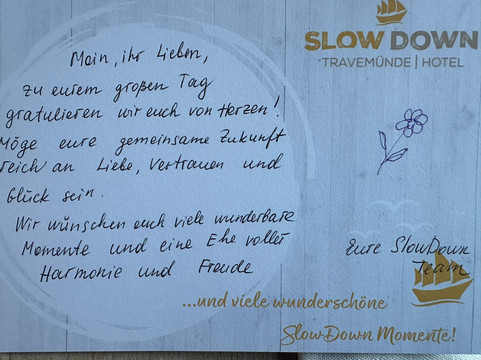 Moin, ihr Lieben,
zu eurem großen Tag
gratulieren wir euch von Herzen!
Möge eure gemeinsame Zukunft
reich an Liebe, Vertrauen und
Glück sein.
Wir wünschen euch viele wunderbare
Momente und eine Ehe voller
Harmonie und Freude
SLOW DOWN
TRAVEMÜNDE | HOTEL
Eure SlowDown
Team
...und viele wunderschöne
SlowDown Momente!